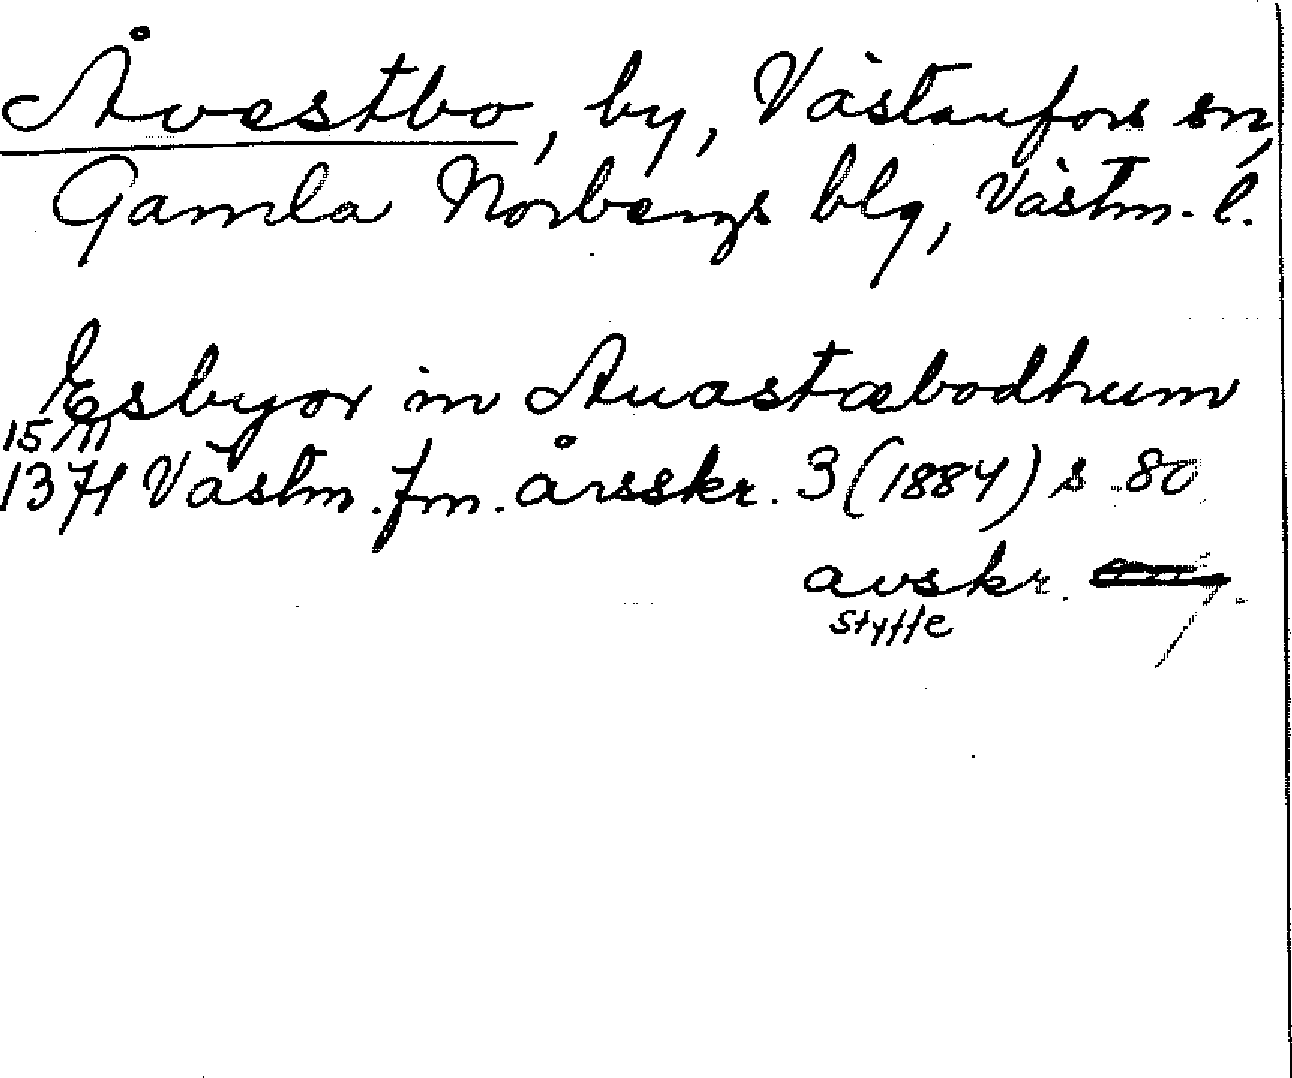 Åvestbo, by, Västanfors sn,
Gamla Norbergs blg, Västm. l.
Esbyor in Auastæbodhum
15/11
1371 Västm. fm. årsskr. 3 (1884) s. 80
avskr.
Styffe